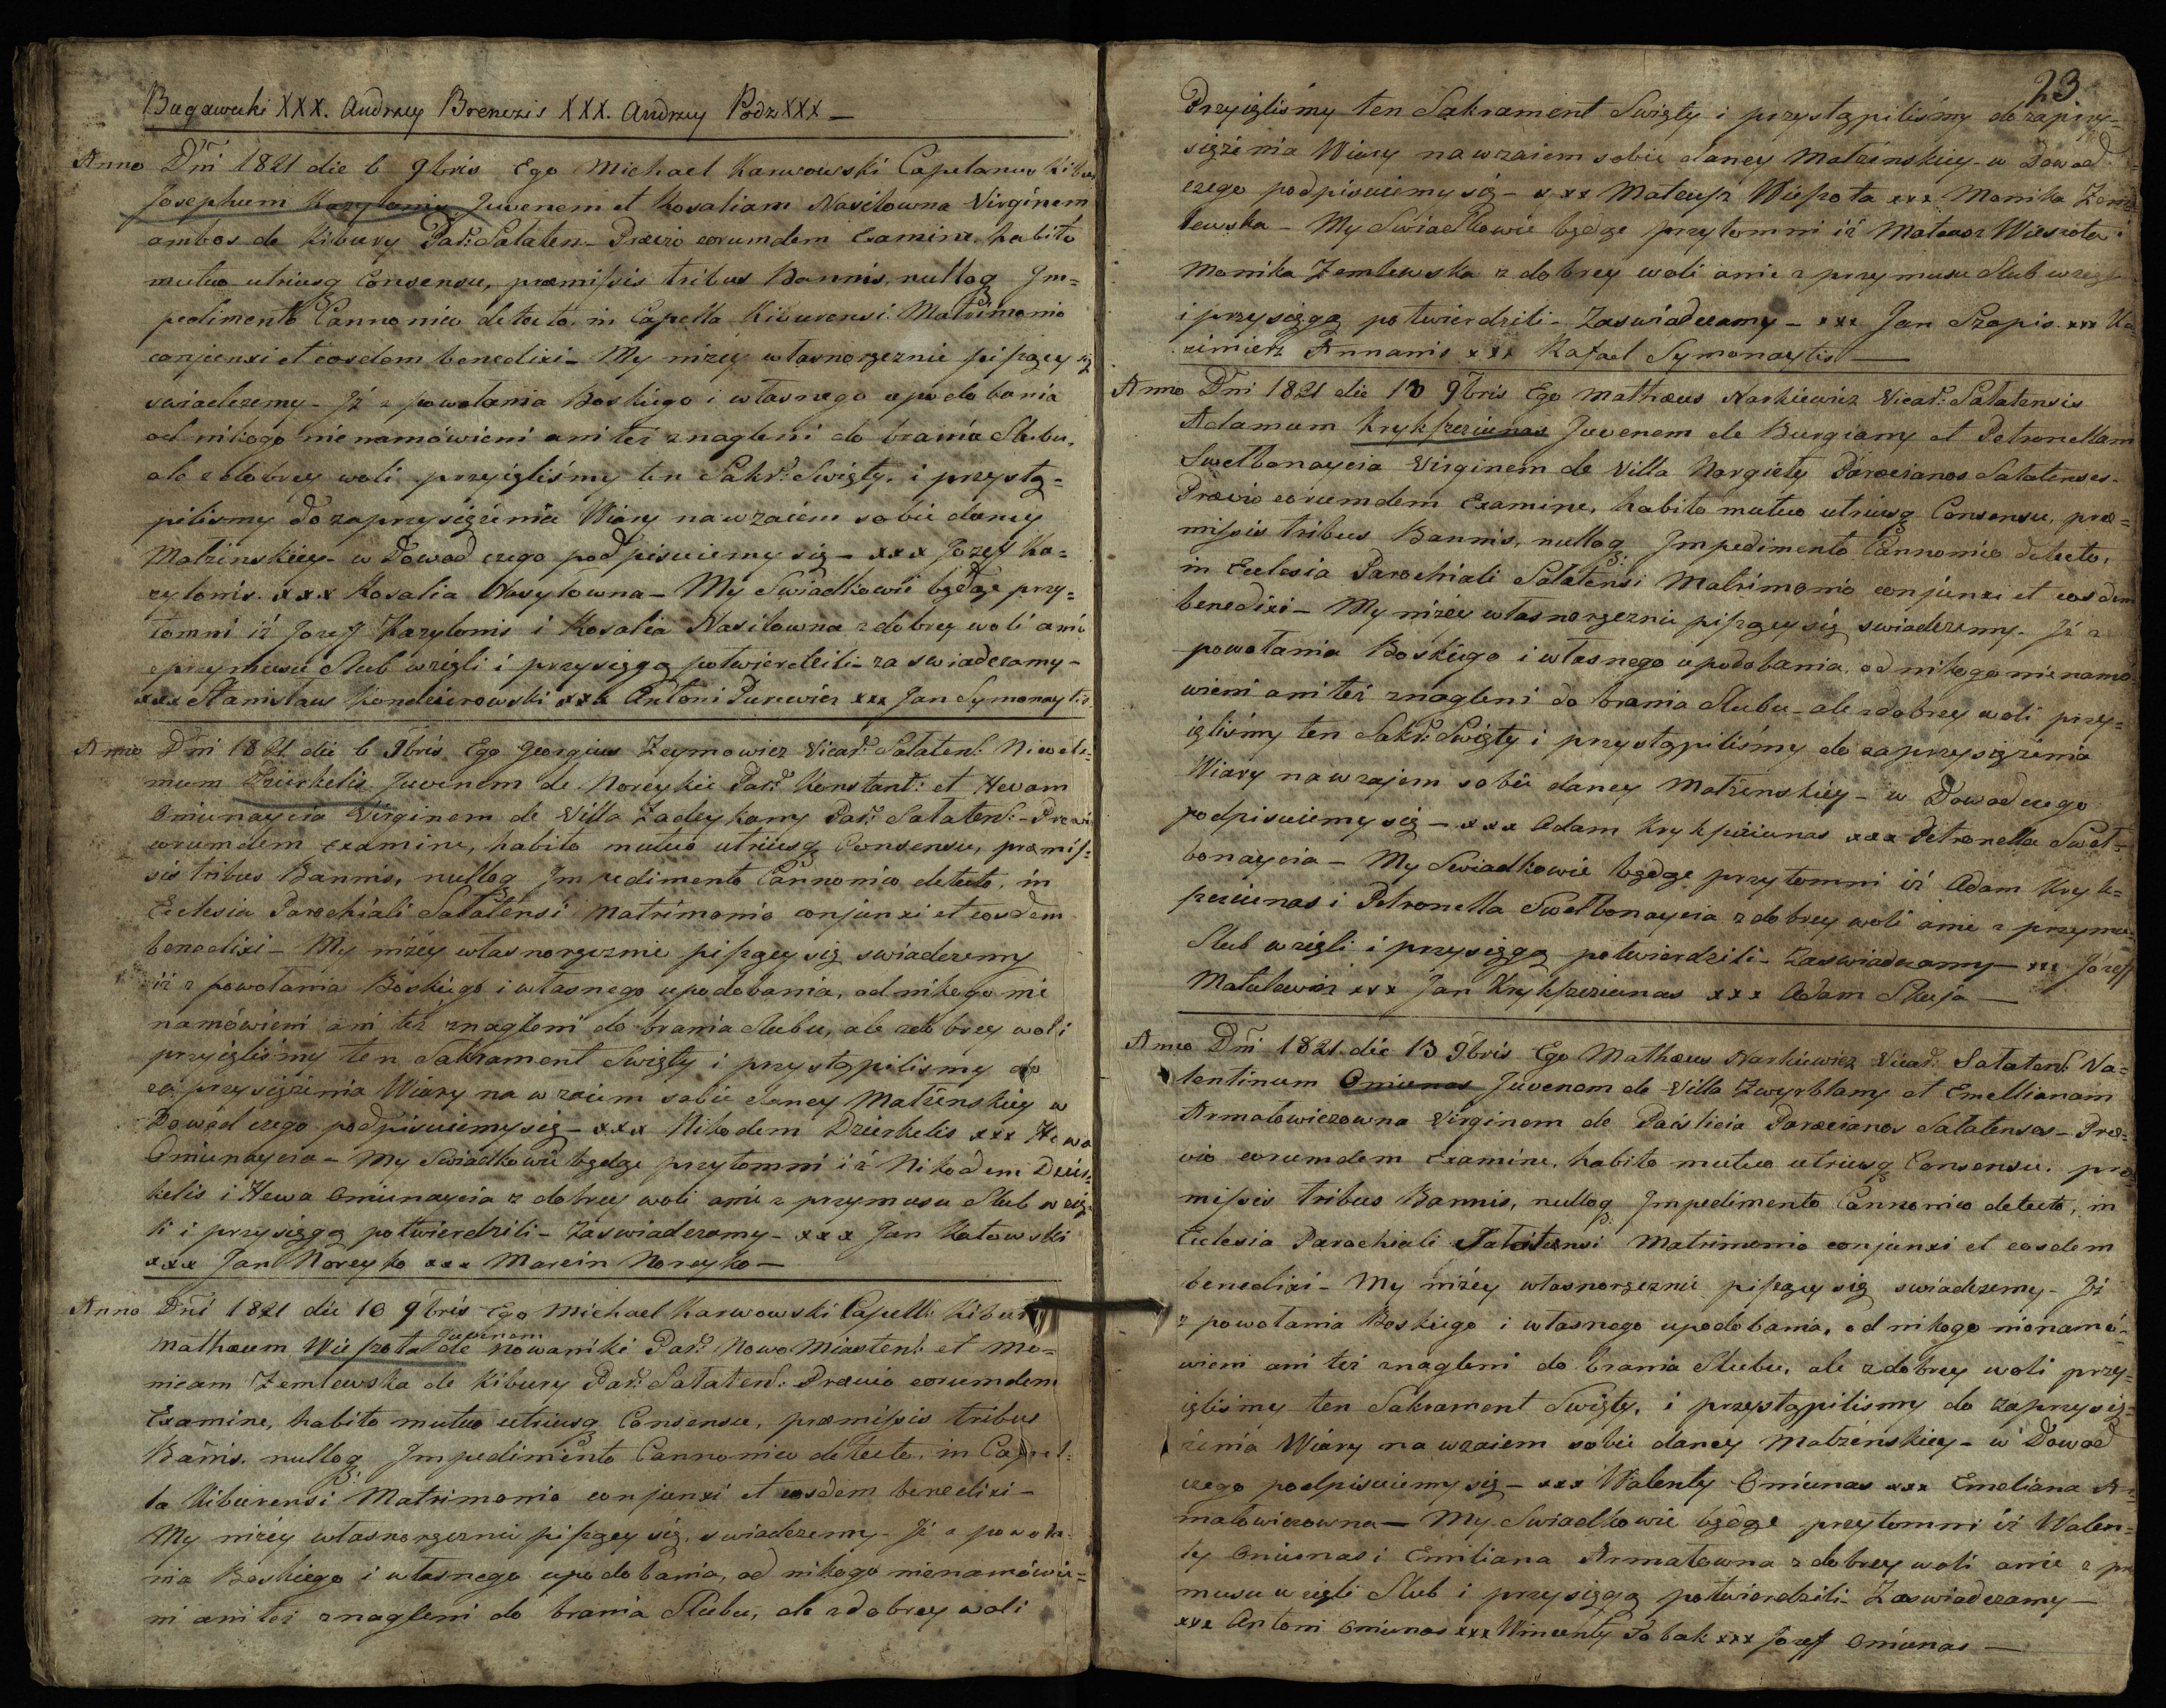 Bugawecki XXX. Andrzey Brenezis XXX. Andrzey Podz XXX –
Anno Dn̄i 1821 die 6 9bris Ego Michael Karwowski Capelanus Kibur
Josephum Kazylonis Juvenem et Rosaliam Nasilowna Virginem
ambos de Kibury Par: Salaten – Prævio eorumdem Examine, habito
mutuo utriusq Consensu, præmissis tribus Bannis, nulloq Jm=
pedimento Cannonico detecto, in Capella Kiburensi Matrimonio
conjunxi et eosdem benedixi – My niżey własnoręcznie piszącysię
swiadczemy – Jż z powołania Boskiego i własnego upodobania
od nikogo nienamówieni ani też znagleni do brania Slubu,
ale z dobrey woli przyięliśmy ten Sakr: Swięty, i przystą=
piliśmy do zaprzysiężenia Wiary nawzaiem sobie daney
Małżenskiey – w Dowod czego podpisuiemy się – xxx Jozeff Ka=
zylonis xxx Rosalia Nasyłowna – My Swiadkowie będąc przy=
tomni iż Jozeff Kazylonis i Rosalia Nasilowna z dobrey woli ani
z przymusu Slub wzięli i przysięgą potwierdzili – zaswiadczamy –
xxx Stanisław Kondzierowski xxx Antoni Purewicz xxx Jan Symonaytis
Anno Dn̄i 1821 die 6 9bris Ego Georgius Zeymowicz Vicar: Salaten: Nicode=
mum Dzierkelis Juvenem de Noreykie Par: Konstant: et Hevam
Oniunaycia Virginem de Villa Zadeykany Par: Salaten: – Prævio
eorumdem examine, habito mutuo utriusq Consensu, præmis=
sis tribus Bannis, nulloq Jmpedimento Cannonico detecto, in
Ecclesia Parochiali Salatensi Matrimonio conjunxi et eosdem
benedixi – My niżey własnoręcznie piszącysię swiadczemy
iż z powołania Boskiego i własnego upodobania, od nikogo nie
namówieni ani też znagleni do brania slubu, ale z dobrey woli
przyięliśmy ten Sakrament Swięty i przystąpiliśmy do
zaprzysiężenia Wiary nawzaiem sobie daney Małżenskiey w
Dowód czego podpisuiemysię – xxx Nikodem Dzierkelis xxx Hewa
Oniunaycia – My Swiadkowie będąc przytomni iż Nikodem Dzier=
kelis i Hewa Oniunaycia z dobrey woli ani z przymusu Slub wzię=
li i przysięgą potwierdzili – Zaswiadczamy – xxx Jan Katowski
xxx Jan Noreyko xxx Marcin Noreyko –
Anno Dn̄i 1821 die 10 9bris Ego Michael Karwowski Capell: Kibur
Juvenem
Mathæum Wieszota de Nowaniki Par: Nowo Miasten: et Mo=
nicam Zemlewska de Kibury Par: Salaten: Prævio eorumdem
Examine, habito mutuo utriusq Consensu, præmissis tribus
Ban̄is, nulloq Jmpedimento Cannonico detecto, in Capel=
la Kiburensi Matrimonio conjunxi et eosdem benedixi –
My niżey własnoręcznie piszącysię, swiadczemy – Jż z powoła=
nia Boskiego i własnego upodobania, od nikogo nienamówie=
ni ani też znagleni do brania Slubu, ale z dobrey woli
23.
Przyięliśmy ten Sakrament Swięty i przystąpiliśmy do zaprzy=
siężenia Wiary nawzaiem sobie daney Małżenskiey – w Dowod
czego podpisuiemy się – xxx Mateusz Wieszota xxx Monika Zem=
lewska – My Swiadkowie będąc przytomni iż Mateusz Wieszota i
Monika Zemlewska z dobrey woli ani z przymusu Slub wzięli
i przysięgą potwierdzili – Zaswiadczamy – xxx Jan Szopis xxx Ka=
zimierz Annanis xxx Rafael Symonaytis –
Anno Dn̄i 1821 die 13 9bris Ego Mathæus Narkiewicz Vicar: Salatensis
Adamum Krykszcziunas Juvenem de Burgiany et Petronellam
Swelbonaycia Virginem de Villa Norgiety Paræcianos Salatenses –
Prævio eorumdem Examine, habito mutuo utriusq Consensu, præ=
missis tribus Bannis, nulloq Jmpedimento Cannonico detecto,
in Ecclesia Parochiali Salatensi Matrimonio conjunxi et eosdem
benedixi – My niżey własnoręcznie piszącysię swiadczemy – Jż z
powołania Boskiego i własnego upodobania, od nikogo nienamó=
wieni ani też znagleni do brania Slubu – ale z dobrey woli przy=
ięliśmy ten Sakr: Swięty i przystąpiliśmy do zaprzysiężenia
Wiary nawzajem sobie daney Małżenskiey – w Dowod czego
podpisuiemysię – xxx Adam Krykszciunas xxx Petronella Swel=
bonaycia – My Swiadkowie będąc przytomni iż Adam Kryk=
szciunas i Petronella Swelbonaycia z dobrey woli ani z przymu=
Slub wzięli i przysięgą potwierdzili – Zaswiadczamy – xxx Józeff
Matulewicz xxx Jan Krykszcziunas xxx Adam Skuja –
Anno Dn̄i 1821 die 13 9bris Ego Mathæus Narkiewicz Vicar: Salaten: Va=
lentinum Oniunas Juvenem de Villa Zwyrblany et Emellianam
Armałowiczowna Virginem de Paislicia Paræcianos Salatenses – Præ=
vio eorumdem Examine, habito mutuo utriusq Consensu, præ=
missis tribus Bannis, nulloq Jmpedimento Cannonico detecto, in
Ecclesia Parochiali Salatensi Matrimonio conjunxi et eosdem
benedixi – My niżey własnoręcznie piszącysię swiadczemy – Jż
z powołania Boskiego i własnego upodobania, od nikogo nienamó=
wieni ani też znagleni do brania Slubu, ale z dobrey woli przy=
ięliśmy ten Sakrament Swięty, i przystąpiliśmy do zaprzysię=
żenia Wiary nawzaiem sobie daney Małżeńskiey – w Dowod
czego podpisuiemysię – xxx Walenty Oniunas xxx Emeliana Ar=
małowiczowna – My Swiadkowie będąc przytomni iż Walen=
ty Oniunas i Emiliana Armałowna z dobrey woli ani z przy
musu wzięli Slub i przysięgą potwierdzili – Zaswiadczamy –
xxx Antoni Oniunas xxx Wincenty Sobak xxx Jozeff Oniunas –